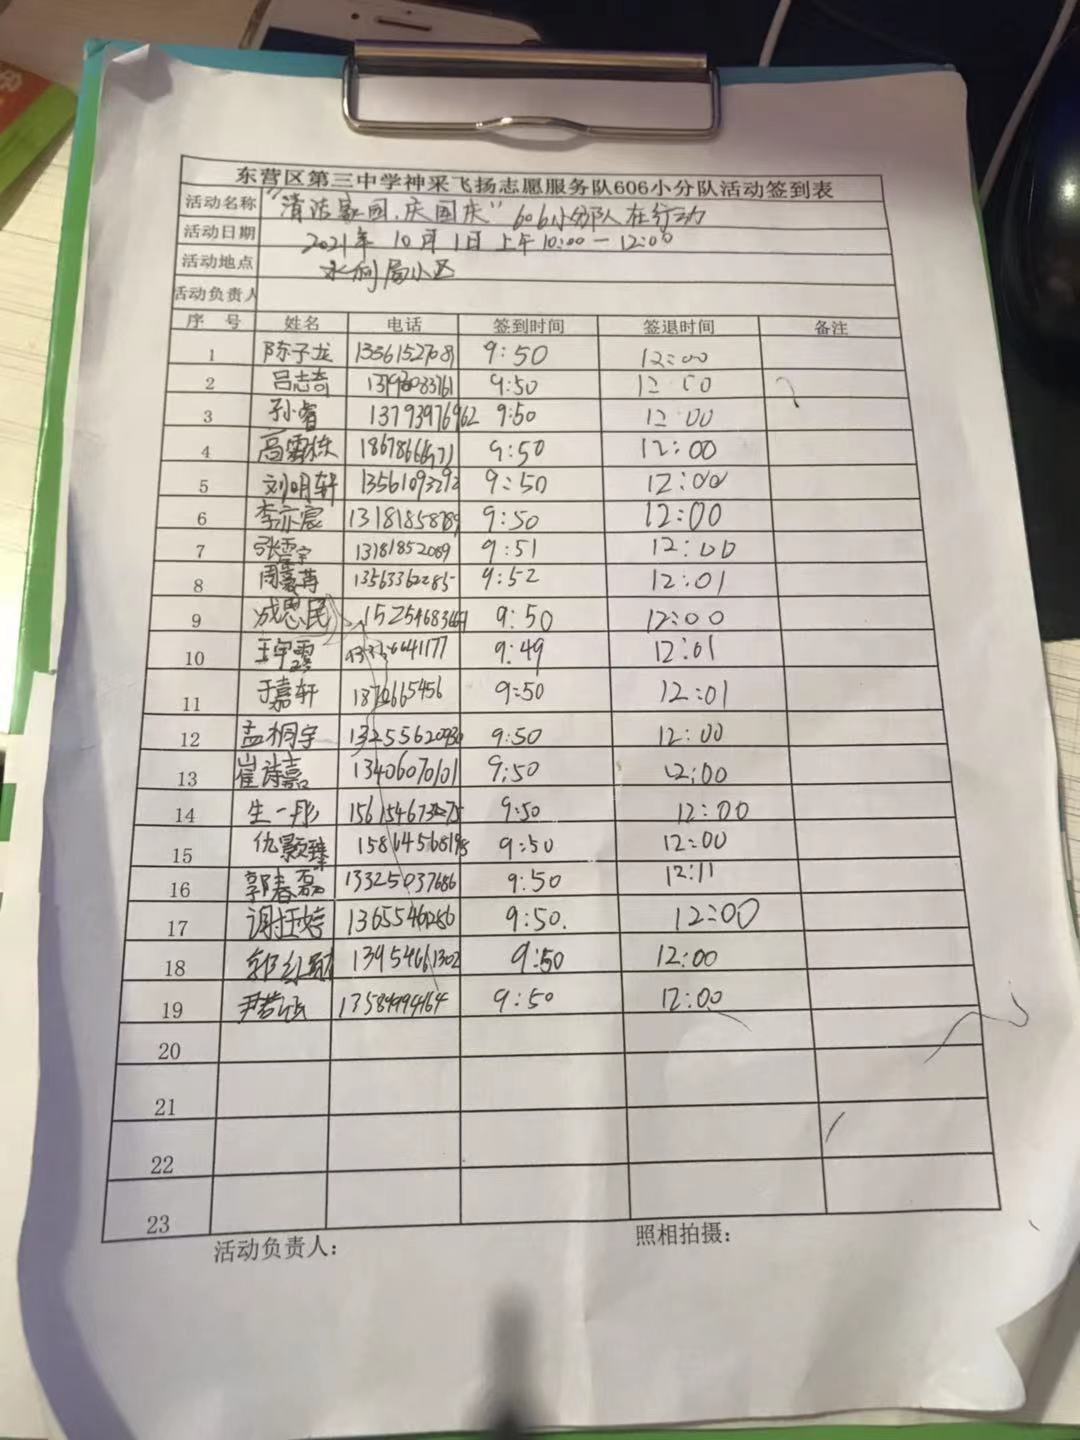 东营区第三中学神采飞扬志愿服务队606小分队活动签到表
活动名称 "清洁家园、庆国庆" 606小分队在行动
活动日期 2021年10月1日上午10:00—12:00
活动地点 水利局小区
活动负责人
序 号 姓名 电话 签到时间 签退时间 备注
1 陈子龙 13561527081 9:50 12:00
2 吕志奇 9:50 12:00
3 孙睿 13793976962 9:50 12:00
4 9:50 12:00
5 刘明轩 13561093292 9:50 12:00
6 李亦宸 9:50 12:00
7 13181852089 9:51 12:00
8 13563362285 9:52 12:01
9 成思民 9:50 12:00
10 9:49 12:01
11 于嘉轩 9:50 12:01
12 孟桐宇 9:50 12:00
13 崔诗嘉 13406070101 9:50 12:00
14 生一彤 9:50 12:00
15 仇颢臻 9:50 12:00
16 郭春磊 13325037686 9:50 12:11
17 9:50. 12:00
18 13954661302 9:50 12:00
19 9:50 12:00
20
21
22
23
活动负责人： 照相拍摄：